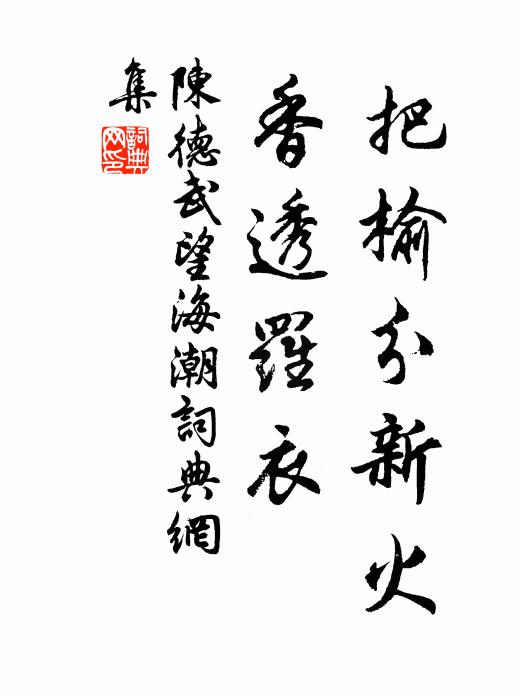 把榆分新火
香透羅衣
陳德武望海潮詞典網
集
詞典網印